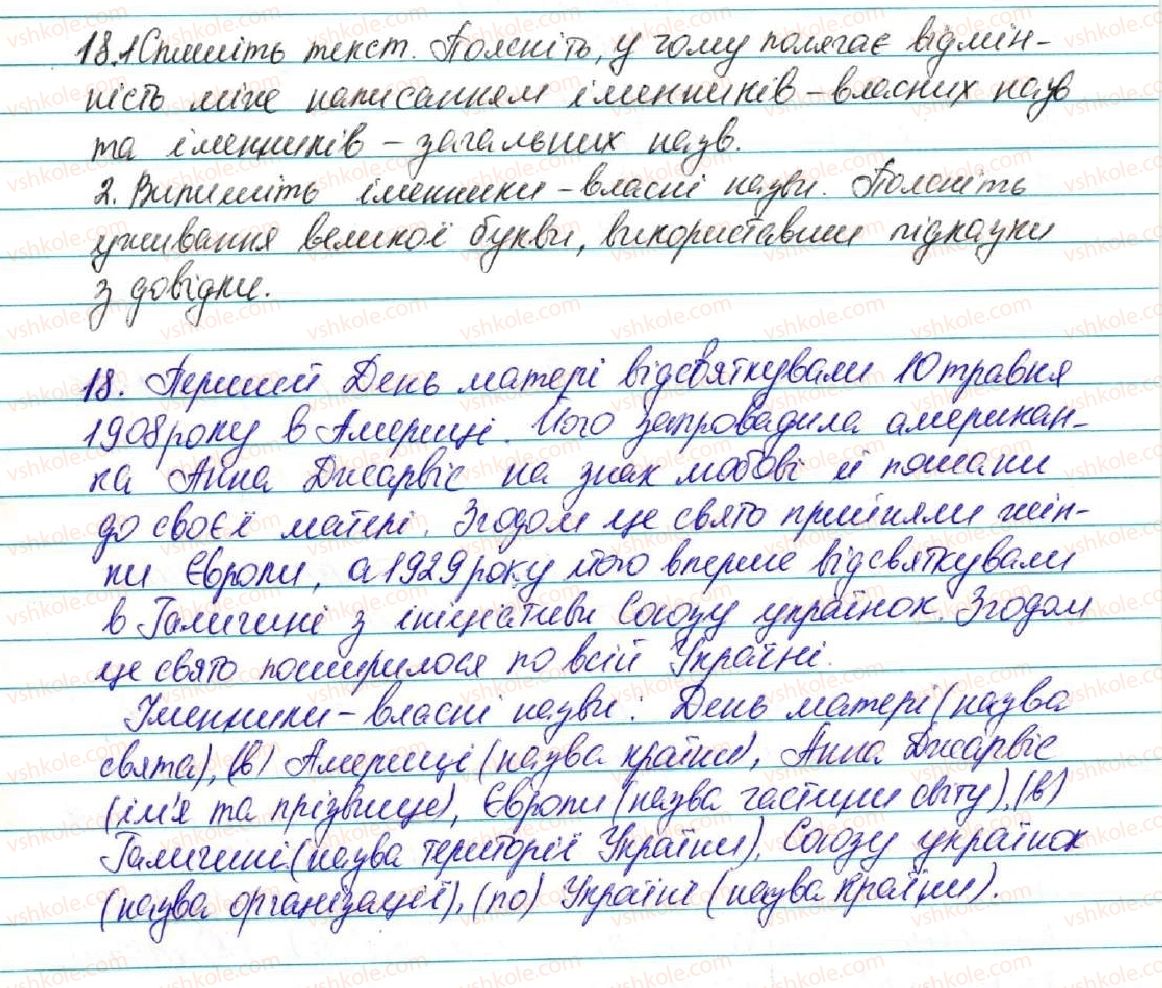 18.1 Спишіть текст. Поясніть, у чому полягає відмін-
ність між написанням іменників – власних назв
та іменників – загальних назв.
2. Випишіть іменники – власні назви. Поясніть
уживання великої букви, використавши підказки
з довідки.
18. Перший День матері відсвяткували 10 травня
1908 року в Америці. Його запровадила американ-
ка Анна Джарвіс на знак любові й пошани
до своєї матері. Згодом це свято прийняли жін-
ки Європи, а 1929 року його вперше відсвяткували
в Галичині з ініціативи Союзу українок. Згодом
це свято поширилося по всій Україні.
Іменники – власні назви: День матері (назва
свята), (в) Америці (назва країни), Анна Джарвіс
(ім'я та прізвище), Європи (назва частини світу), (в)
Галичині (назва території України), Союзу українок
(назва організації), (по) Україні (назва країни).